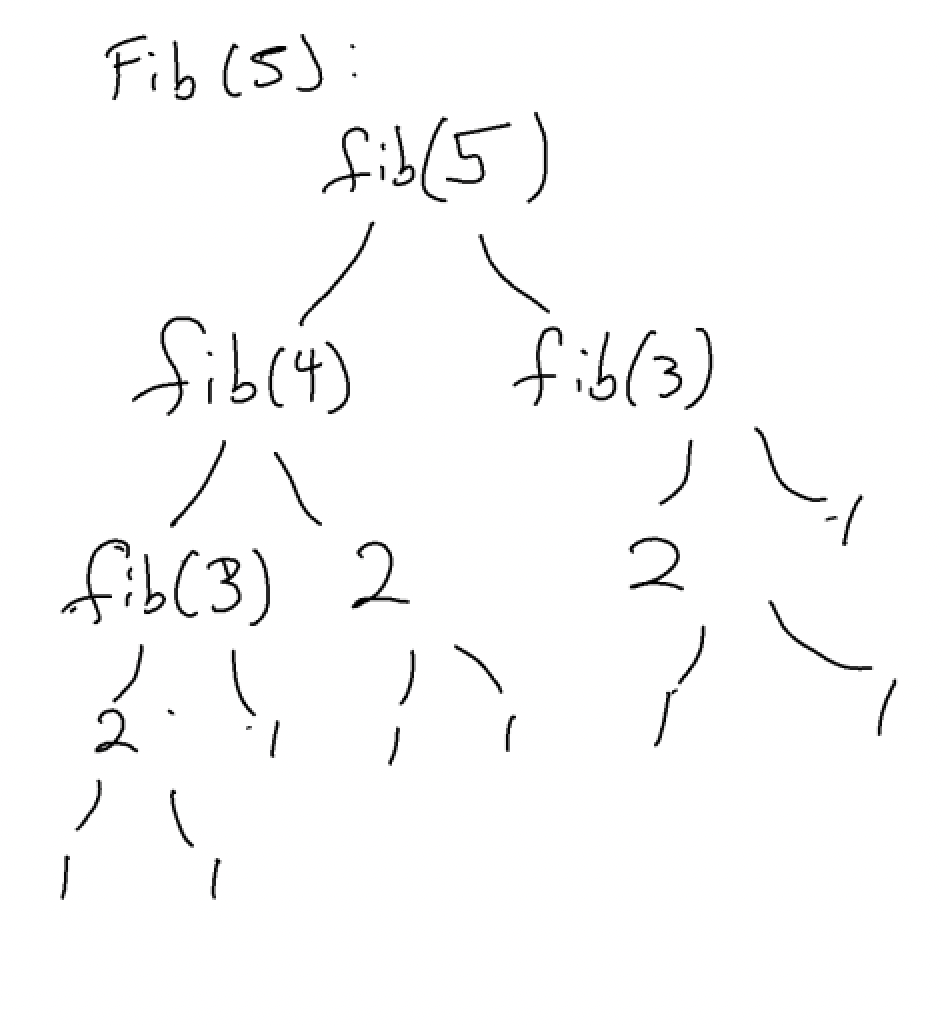 Fib(5):
fib(5)
fib(4) fib(3)
fib(3) 2 2 1
2 1 1 1 1 1
1 1